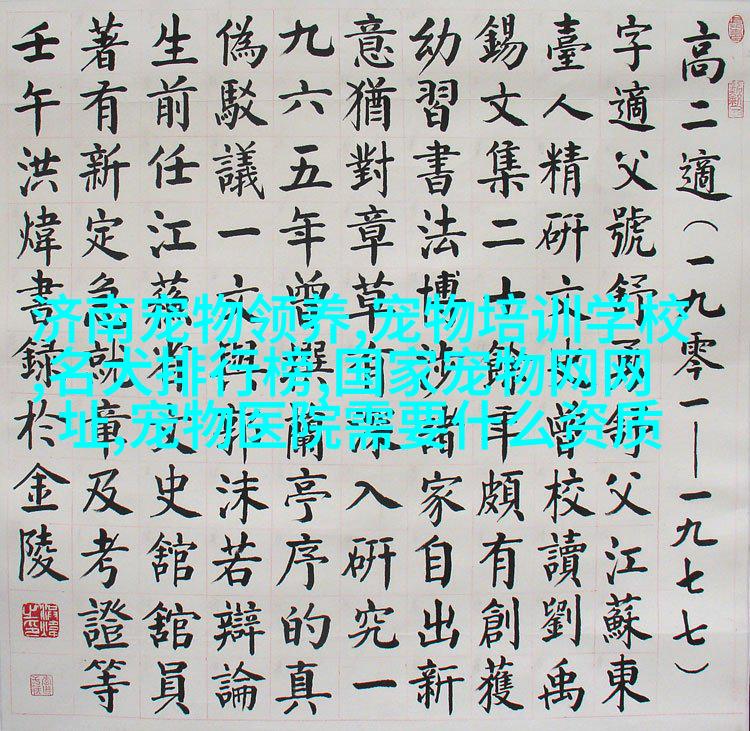 高二適（一九零一——一九七七）
字適父號舒舒父江蘇東
臺人精研文史曾校讀劉禹
錫文集二十餘年頗有創獲
幼習書法博涉諸家自出新
意猶對章草有深入研究一
九六五年曾撰蘭亭序的真
偽駁議一文與郭沫若辯論
生前任江蘇省文史舘舘員
著有新定急就章及考證等
壬午洪煒書録於金陵
济南宠物领养,宠物培训学校
,名犬排行榜,国家宠物网网
址,宠物医院需要什么资质